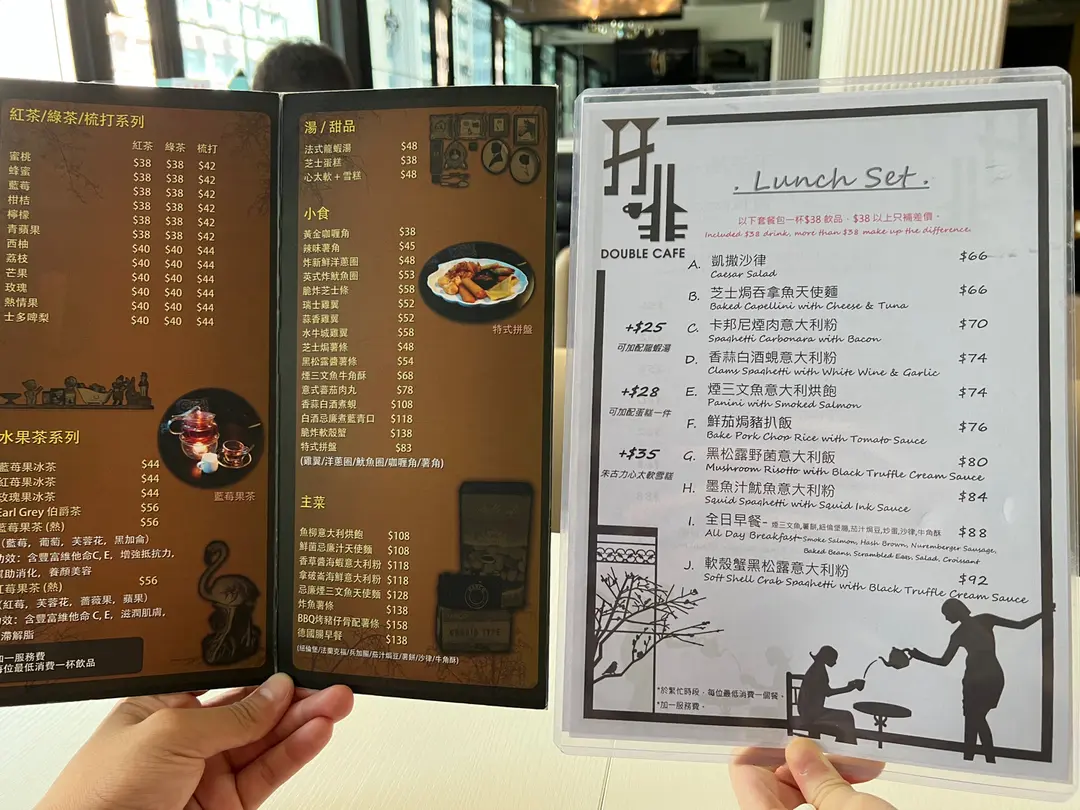 紅茶/綠茶/梳打系列
紅茶 綠茶 梳打
蜜桃 $38 $38 $42
蜂蜜 $38 $38 $42
藍莓 $38 $38 $42
柑桔 $38 $38 $42
檸檬 $38 $38 $42
青蘋果 $38 $38 $42
西柚 $40 $40 $44
荔枝 $40 $40 $44
芒果 $40 $40 $44
玫瑰 $40 $40 $44
熱情果 $40 $40 $44
士多啤梨 $40 $40 $44
水果茶系列
藍莓果冰茶 $44
紅莓果冰茶 $44
玫瑰果冰茶 $44
Earl Grey 伯爵茶 $56
藍莓果茶 (熱) $56
(藍莓, 葡萄, 芙蓉花, 黑加侖)
功效: 含豐富維他命C, E, 增強抵抗力,
幫助消化, 養顏美容
紅莓果茶 (熱) $56
(紅莓, 芙蓉花, 薔薇果, 蘋果)
功效: 含豐富維他命 C, E, 滋潤肌膚,
滯解脂
藍莓果茶
加一服務費
每位最低消費一杯飲品
湯 / 甜品
法式龍蝦湯 $48
芝士蛋糕 $38
心太軟 + 雪糕 $48
小食
黃金咖喱角 $38
辣味薯角 $45
炸新鮮洋蔥圈 $48
英式炸魷魚圈 $53
脆炸芝士條 $58
瑞士雞翼 $52
蒜香雞翼 $52
水牛城雞翼 $58
芝士焗薯條 $48
黑松露醬薯條 $54
煙三文魚牛角酥 $68
意式蕃茄肉丸 $78
香蒜白酒煮蜆 $108
白酒忌廉煮藍青口 $118
脆炸軟殼蟹 $138
特式拼盤 $83
(雞翼/洋蔥圈/魷魚圈/咖喱角/薯角)
特式拼盤
主菜
魚柳意大利烘飽 $108
鮮菌忌廉汁天使麵 $108
香草醬海蝦意大利粉 $118
拿破崙海鮮意大利粉 $118
忌廉煙三文魚天使麵 $128
炸魚薯條 $138
BBQ烤豬仔骨配薯條 $158
德國腸早餐 $138
(紐倫堡/法蘭克福/兵加龍/茄汁焗豆/薯餅/沙律/牛角酥)
DOUBLE CAFE
. Lunch Set .
以下套餐包一杯$38 飲品，$38 以上只補差價。
Included $38 drink, more than $38 make up the difference.
A. 凱撒沙律 $66
Caesar Salad
B. 芝士焗吞拿魚天使麵 $66
Baked Capellini with Cheese & Tuna
C. 卡邦尼煙肉意大利粉 $70
Spaghetti Carbonara with Bacon
D. 香蒜白酒蜆意大利粉 $74
Clams Spaghetti with White Wine & Garlic
E. 煙三文魚意大利烘飽 $74
Panini with Smoked Salmon
F. 鮮茄焗豬扒飯 $76
Bake Pork Chop Rice with Tomato Sauce
G. 黑松露野菌意大利飯 $80
Mushroom Risotto with Black Truffle Cream Sauce
H. 墨魚汁魷魚意大利粉 $84
Squid Spaghetti with Squid Ink Sauce
I. 全日早餐- 煙三文魚,薯餅,紐倫堡腸,茄汁焗豆,炒蛋,沙律,牛角酥 $88
All Day Breakfast-Smoke Salmon, Hash Brown, Nuremberger Sausage,
Baked Beans, Scrambled Eggs, Salad, Croissant
J. 軟殼蟹黑松露意大利粉 $92
Soft Shell Crab Spaghetti with Black Truffle Cream Sauce
+$25
可加配龍蝦湯
+$28
可加配蛋糕一件
+$35
朱古力心太軟雪糕
*於繁忙時段，每位最低消費一個餐。
*加一服務費。